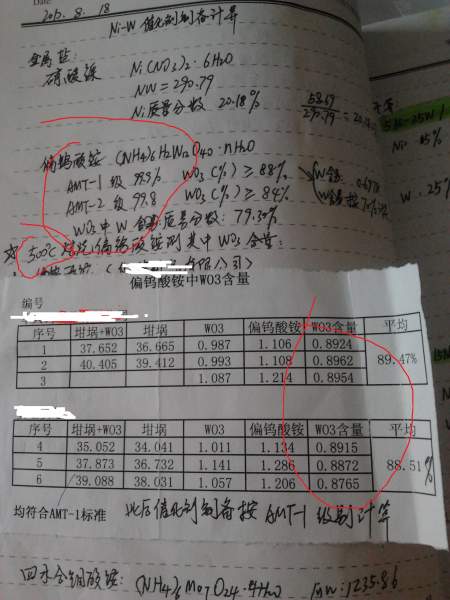 Date:
2015. 8. 18
Ni-W 催化剂制备计算
金属盐:
硝酸镍 Ni(NO3)2·6H2O
MW = 290.79
Ni质量分数 20.18%
58.69
290.79
偏钨酸铵 (NH4)6H2W12O40·nH2O
AMT-1 级 99.9% WO3(%) ≥ 88%
AMT-2 级 99.8 WO3(%) ≥ 84%
WO3中 W 质量分数: 79.30%
500℃ 偏钨酸铵 其中 WO3 含量:
偏钨酸铵中WO3含量
编号
序号 坩埚+WO3 坩埚 WO3 偏钨酸铵 WO3含量 平均
1 37.652 36.665 0.987 1.106 0.8924 89.47%
2 40.405 39.412 0.993 1.108 0.8962
3 1.087 1.214 0.8954
序号 坩埚+WO3 坩埚 WO3 偏钨酸铵 WO3含量 平均
4 35.052 34.041 1.011 1.134 0.8915 88.51%
5 37.873 36.732 1.141 1.286 0.8872
6 39.088 38.031 1.057 1.206 0.8765
均符合AMT-1标准 此后催化剂制备按 AMT-1 级别计算
四水合钼酸铵: (NH4)6Mo7O24·4H2O MW: 1235.86